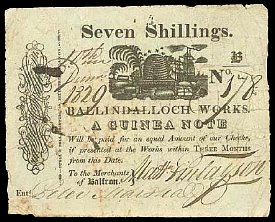 Seven Shillings.
B
No. 178
1829
BALLINDALLOCH WORKS.
A GUINEA NOTE
Will be paid for an equal Amount of our Checks,
if presented at the Works within THREE MONTHS
from this Date.
To the Merchants
of Balfron.
Ent.